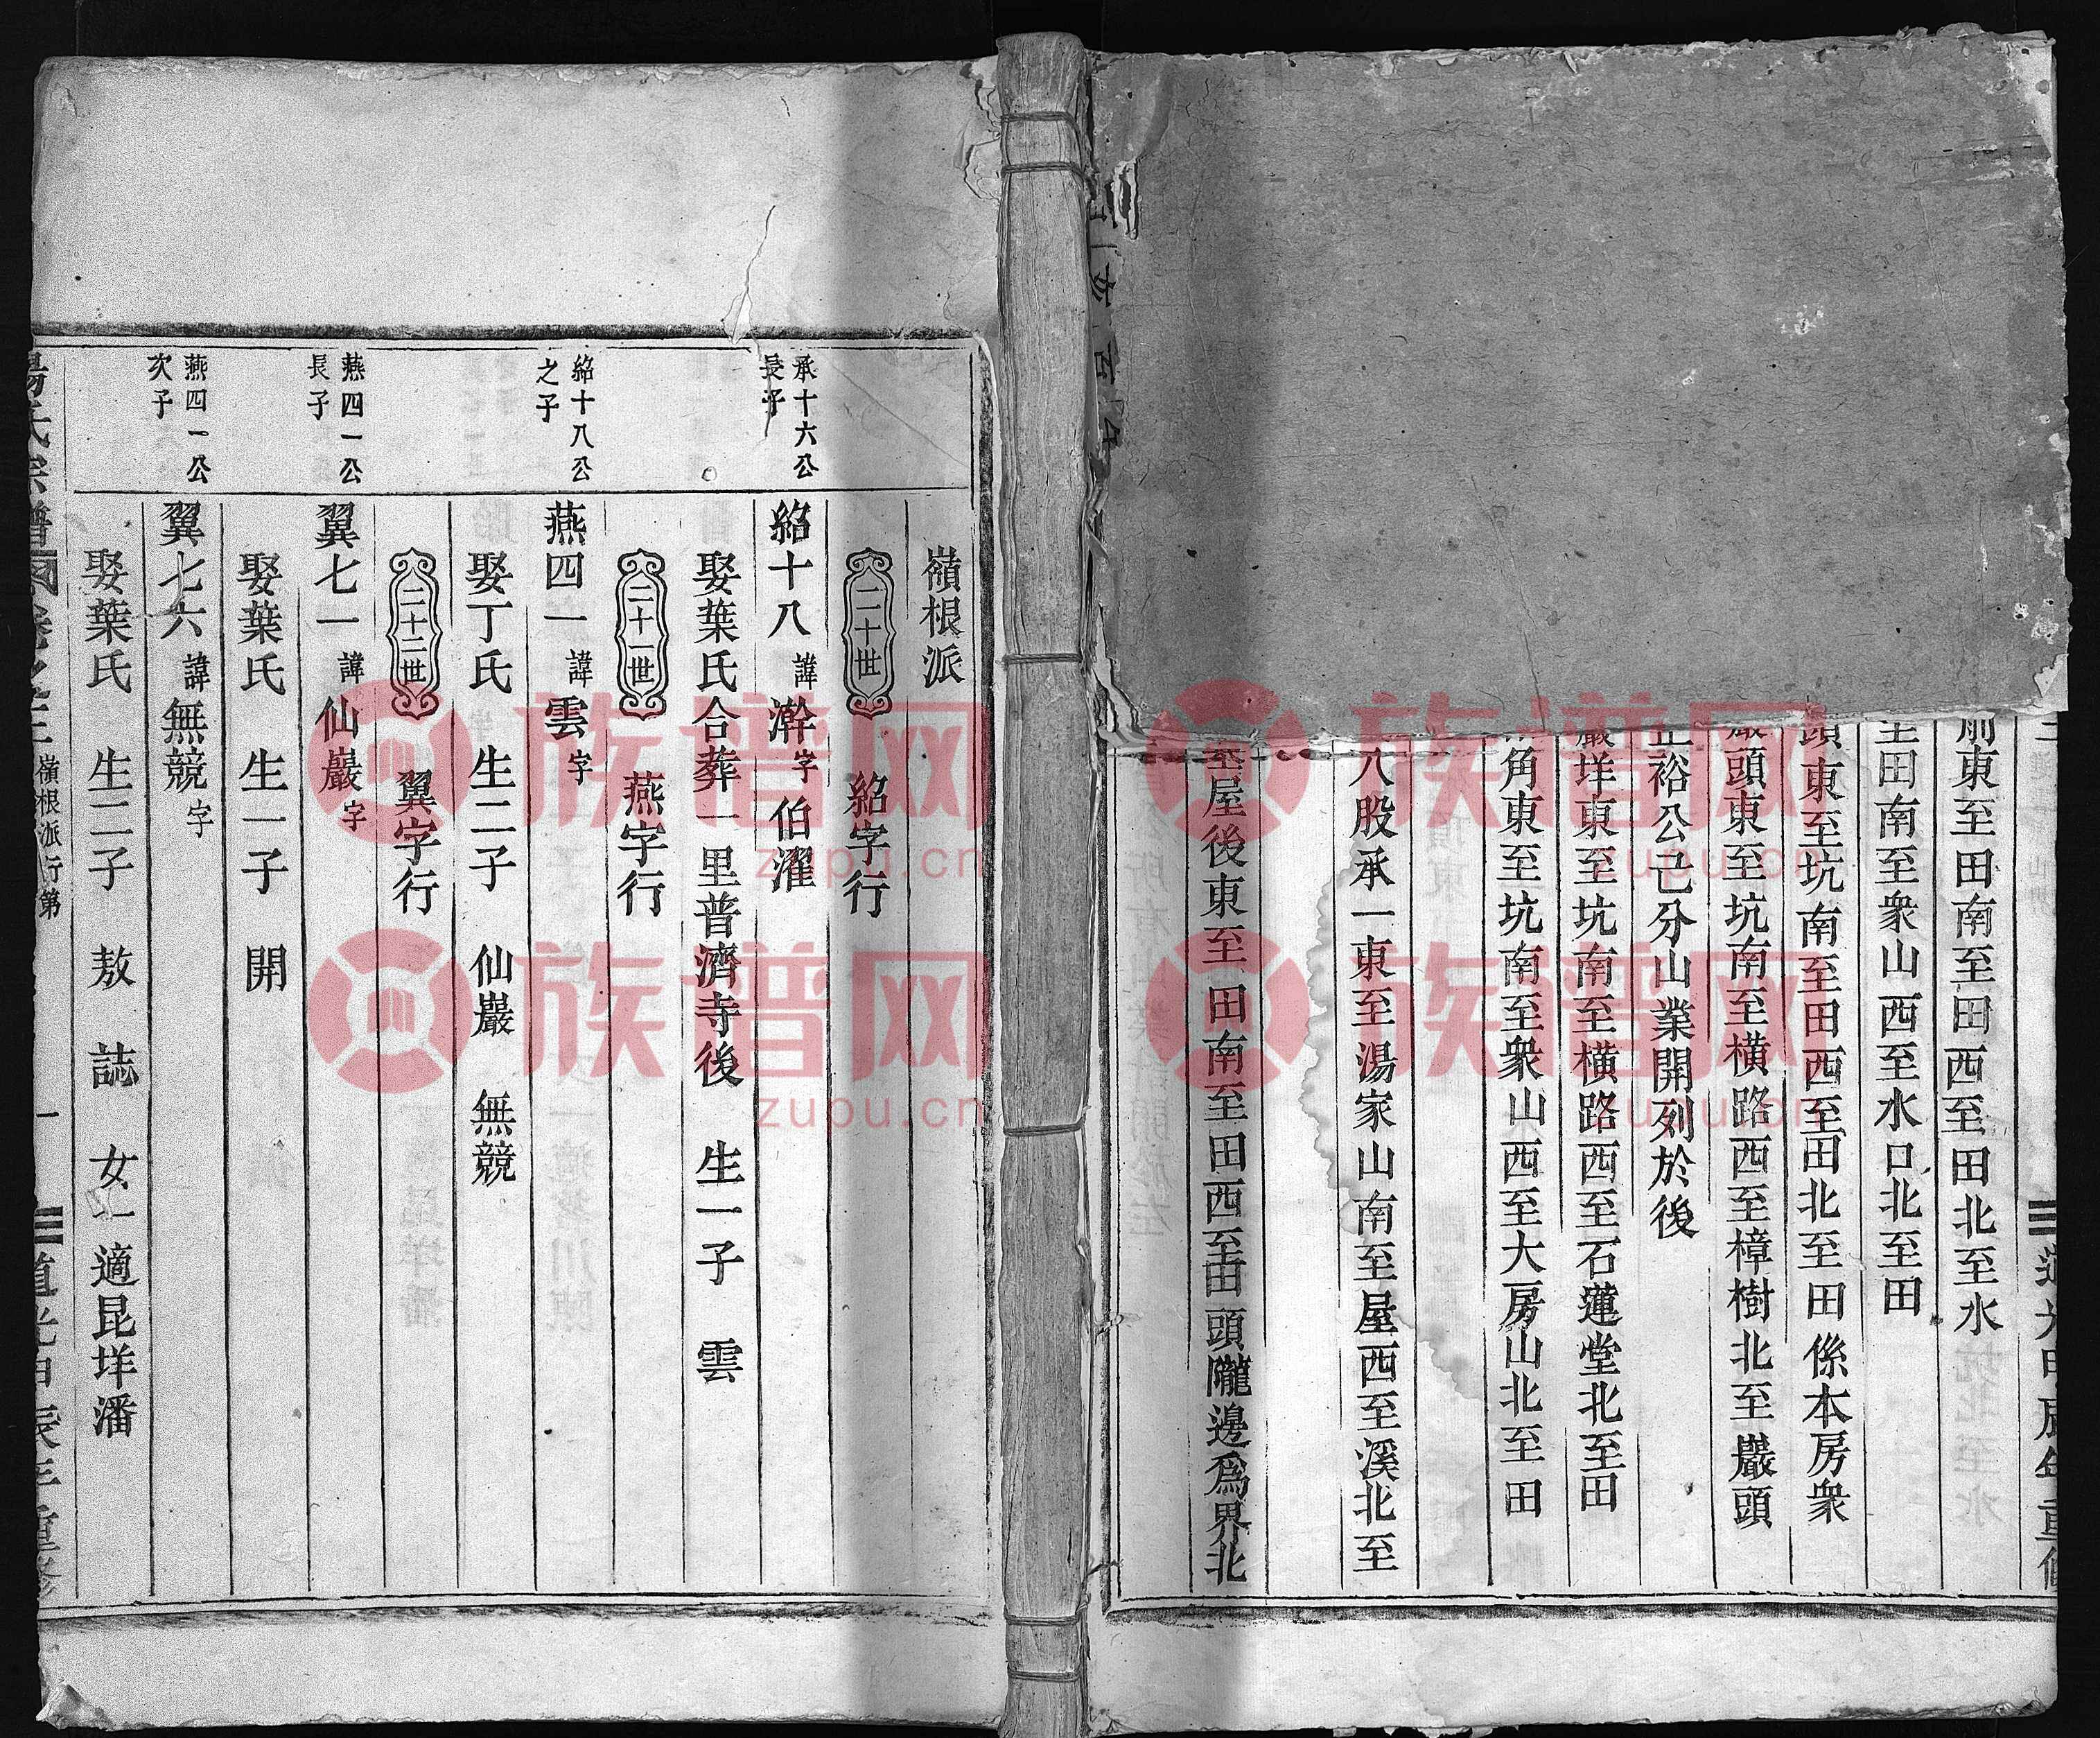 前東至田南至田西至田北至水
至田南至衆山西至水口北至田
頭東至坑南至田西至田北至田係本房衆
巖頭東至坑南至横路西至樟樹北至巖頭
裕公已分山業開列於後
巖垟東至坑南至横路西至石蓮堂北至田
角東至坑南至衆山西至大房山北至田
八股承一東至湯家山南至屋西至溪北至
至屋後東至田南至田西至田頭隴邊為界北
嶺根派
二十世 紹字行
承十六公長子
紹十八 諱澣 字伯濯
娶葉氏合葬一里普濟寺後 生一子 雲
二十一世 燕字行
紹十八公之子
燕四一 諱雲 字
娶丁氏 生二子 仙巖 無競
二十二世 翼字行
燕四一公長子
翼七一 諱仙巖 字
娶葉氏 生一子 開
燕四一公次子
翼七六 諱無競 字
娶葉氏 生二子 敖 誌 女一適昆垟潘
湯氏宗譜 卷之三 嶺根派行第 一 道光甲辰年重修
族谱网
zupu.cn
族谱网
zupu.cn
族谱网
zupu.cn
族谱网
zupu.cn